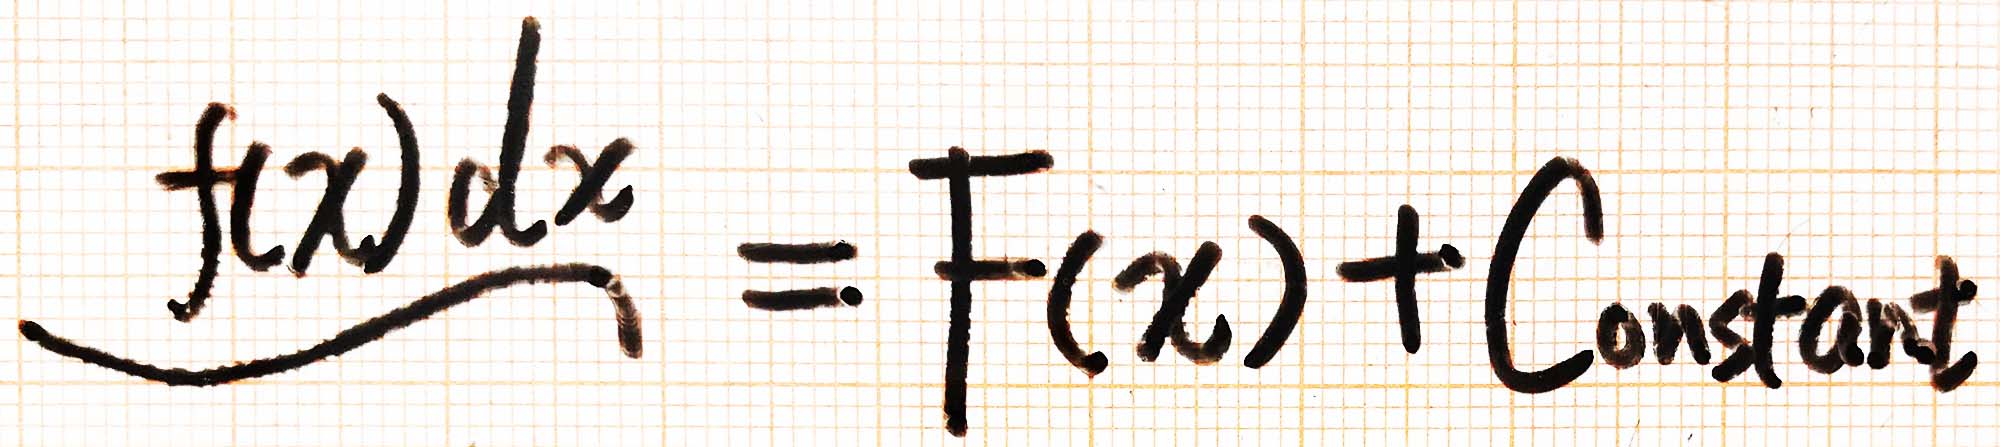 f(x)dx = F(x) + Constant